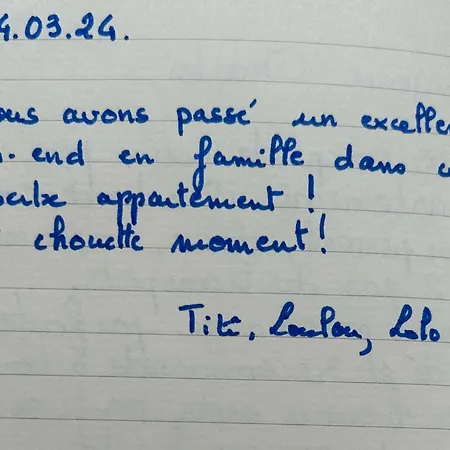 4.03.24.
ous avons passé un excelle
. end en famille dans c
perbe appartement !
chouette moment !
Titi, Loulou, Lolo